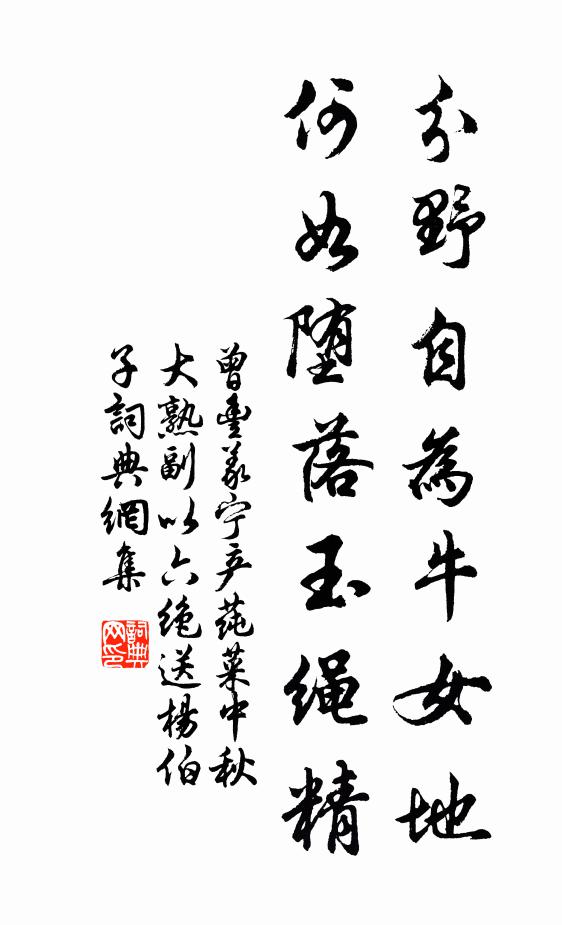 分野自為牛女地
何如墮落玉繩精
曾豐義寧产蓴菜中秋
大熟副以六绝送楊伯
子詞典網集
詞典網印